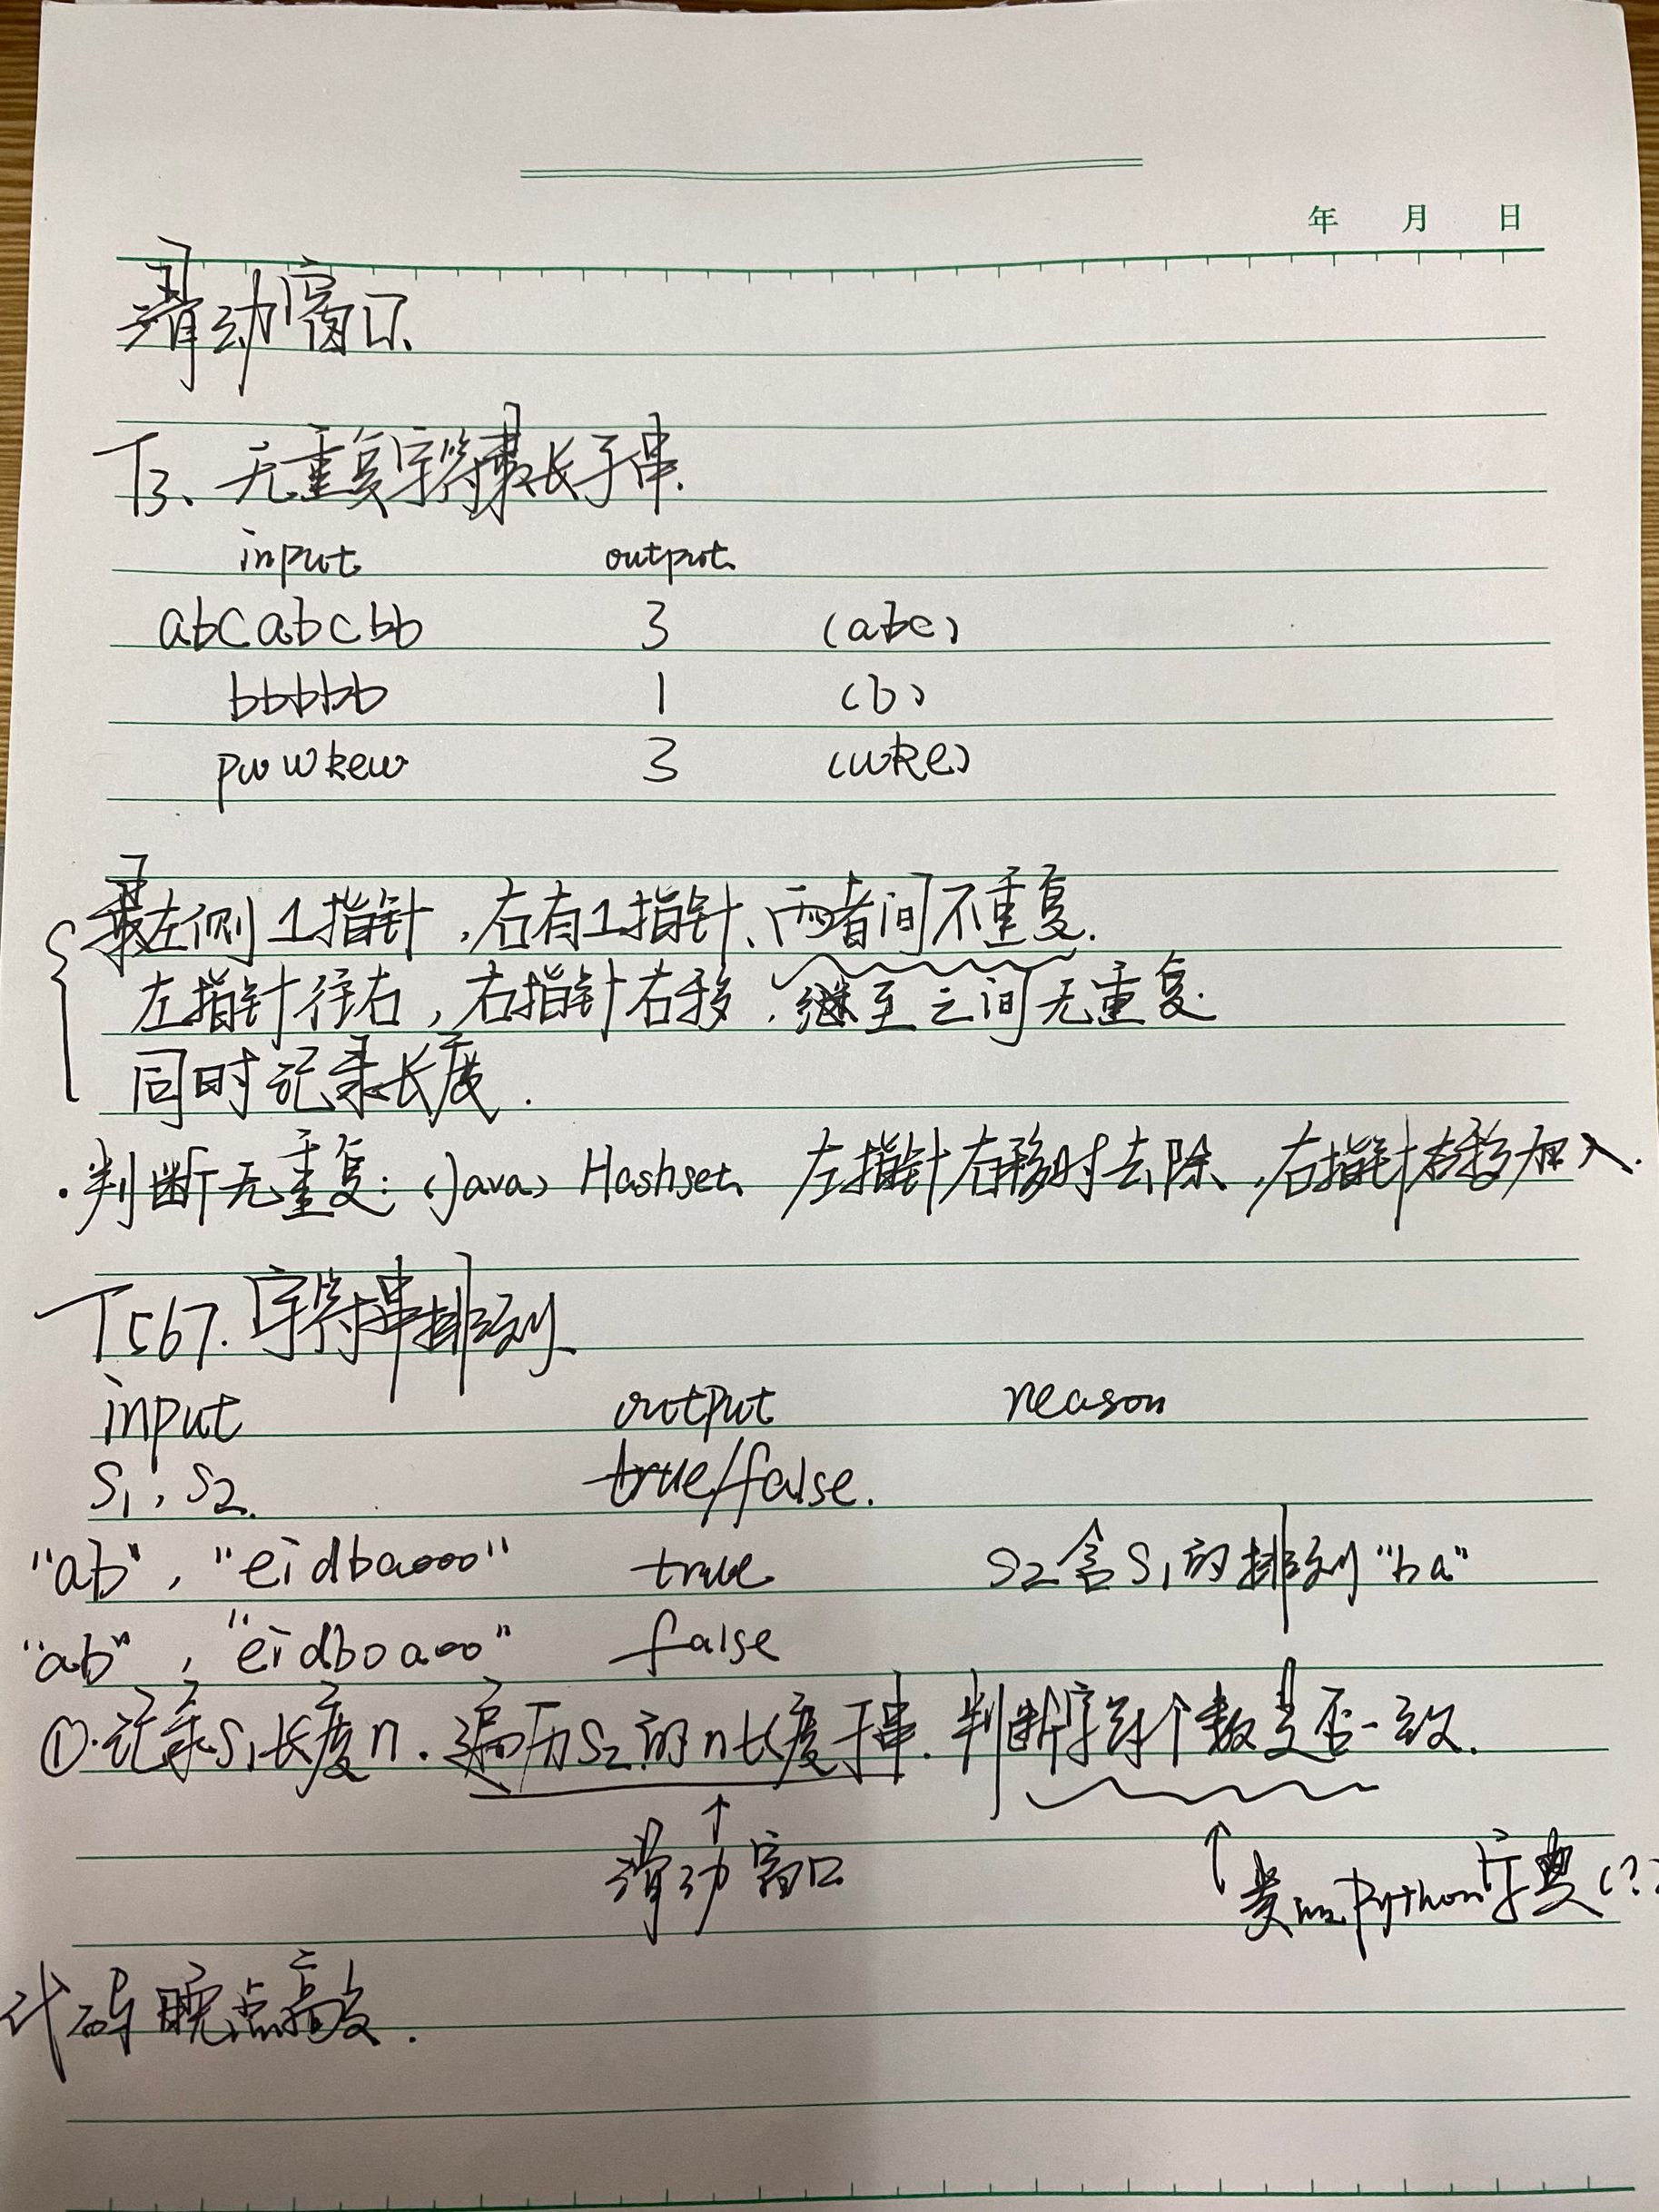 年 月 日
滑动窗口
T3、无重复字符最长子串.
input output
abcabcbb 3 (abc)
bbbbb 1 (b)
pwwkew 3 (wke)
最左侧1指针,右有1指针、两者间不重复.
左指针往右,右指针右移,继至之间无重复.
同时记录长度.
·判断无重复:(Java) Hashset 左指针右移时去除,右指针右移加入.
T567.字符串排列
input output reason
S1,S2. true/false.
"ab", "eidbaooo" true S2含S1的排列"ba"
"ab", "eidboaoo" false
①.记录S1长度n.遍历S2的n长度子串.判断字符个数是否一致.
↑ ↑
滑动窗口 类似Python字典(?)
代码晚点再敲.